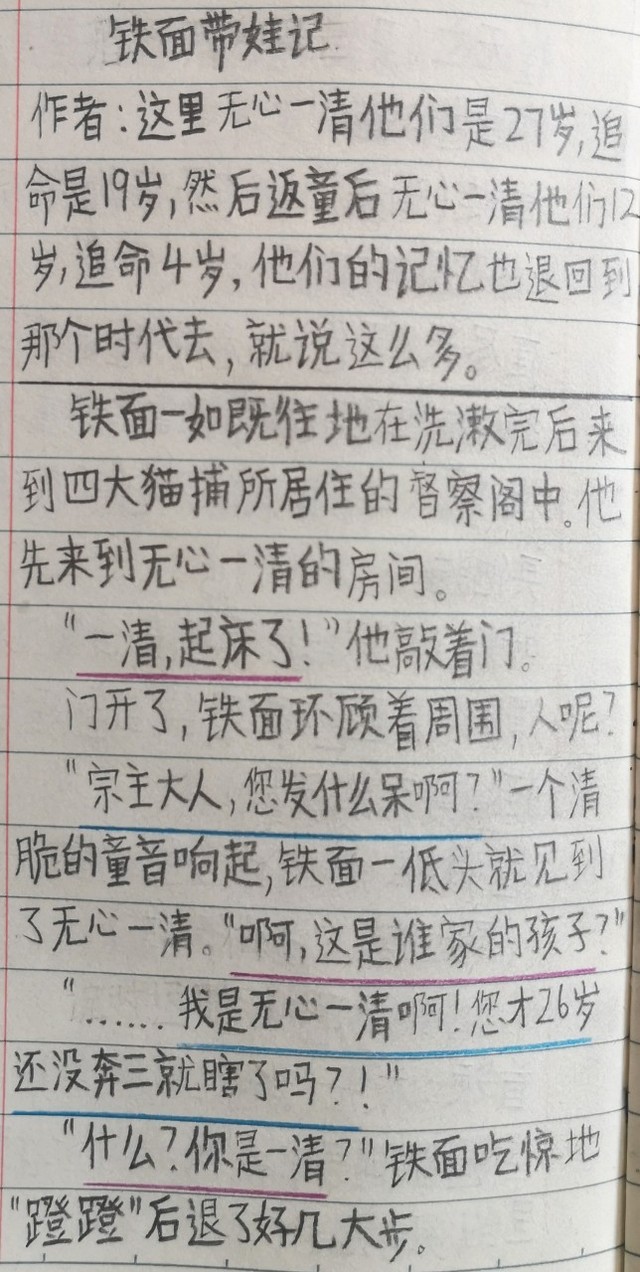 铁面带娃记
作者:这里无心一清他们是27岁,追
命是19岁,然后返童后无心一清他们12
岁,追命4岁,他们的记忆也退回到
那个时代去,就说这么多。
铁面一如既往地在洗漱完后来
到四大猫捕所居住的督察阁中。他
先来到无心一清的房间。
“一清,起床了!”他敲着门。
门开了,铁面环顾着周围,人呢?
“宗主大人,您发什么呆啊?”一个清
脆的童音响起,铁面一低头就见到
了无心一清。“啊,这是谁家的孩子?”
“……我是无心一清啊!您才26岁
还没奔三就瞎了吗?!”
“什么?你是一清?”铁面吃惊地
“蹬蹬”后退了好几大步。